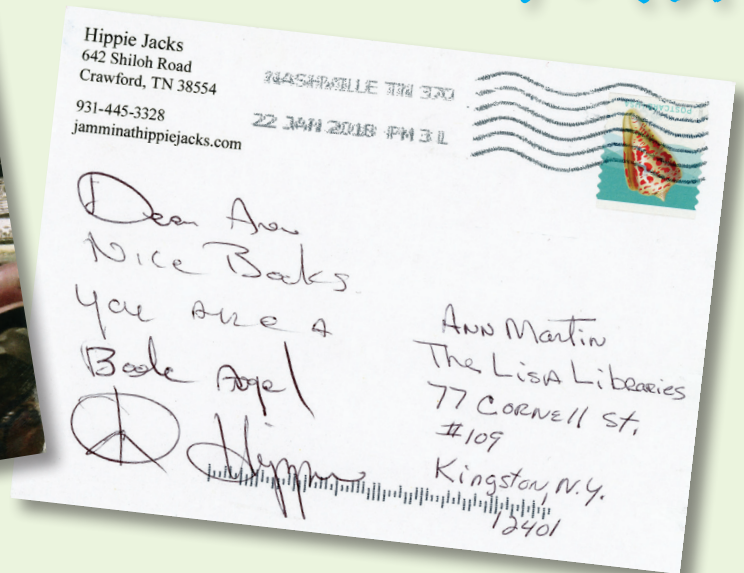 Hippie Jacks
642 Shiloh Road
Crawford, TN 38554
931-445-3328
jamminathippiejacks.com
NASHVILLE TN 370
22 JAN 2018 PM 3 L
POSTCARD
Dear Ann
Nice Books
you are a
Book Angel
Hippie
Ann Martin
The Lisa Libraries
77 Cornell St.
#109
Kingston, N.Y.
12401